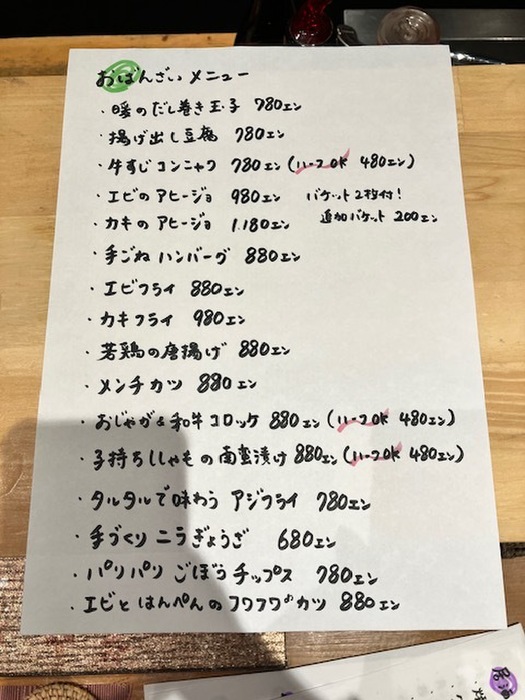 おばんざいメニュー
・暖のだし巻き玉子 780エン
・揚げ出し豆腐 780エン
・牛すじコンニャク 780エン(ハーフOK 480エン)
・エビのアヒージョ 980エン バケット2枚付!
・カキのアヒージョ 1.180エン 追加バケット 200エン
・手ごねハンバーグ 880エン
・エビフライ 880エン
・カキフライ 980エン
・若鶏の唐揚げ 880エン
・メンチカツ 880エン
・おじゃが&和牛コロッケ 880エン(ハーフOK 480エン)
・子持ちししゃもの南蛮漬け 880エン(ハーフOK 480エン)
・タルタルで味わう アジフライ 780エン
・手づくりニラぎょうざ 680エン
・パリパリ ごぼうチップス 780エン
・エビとはんぺんのフワフワ♪カツ 880エン